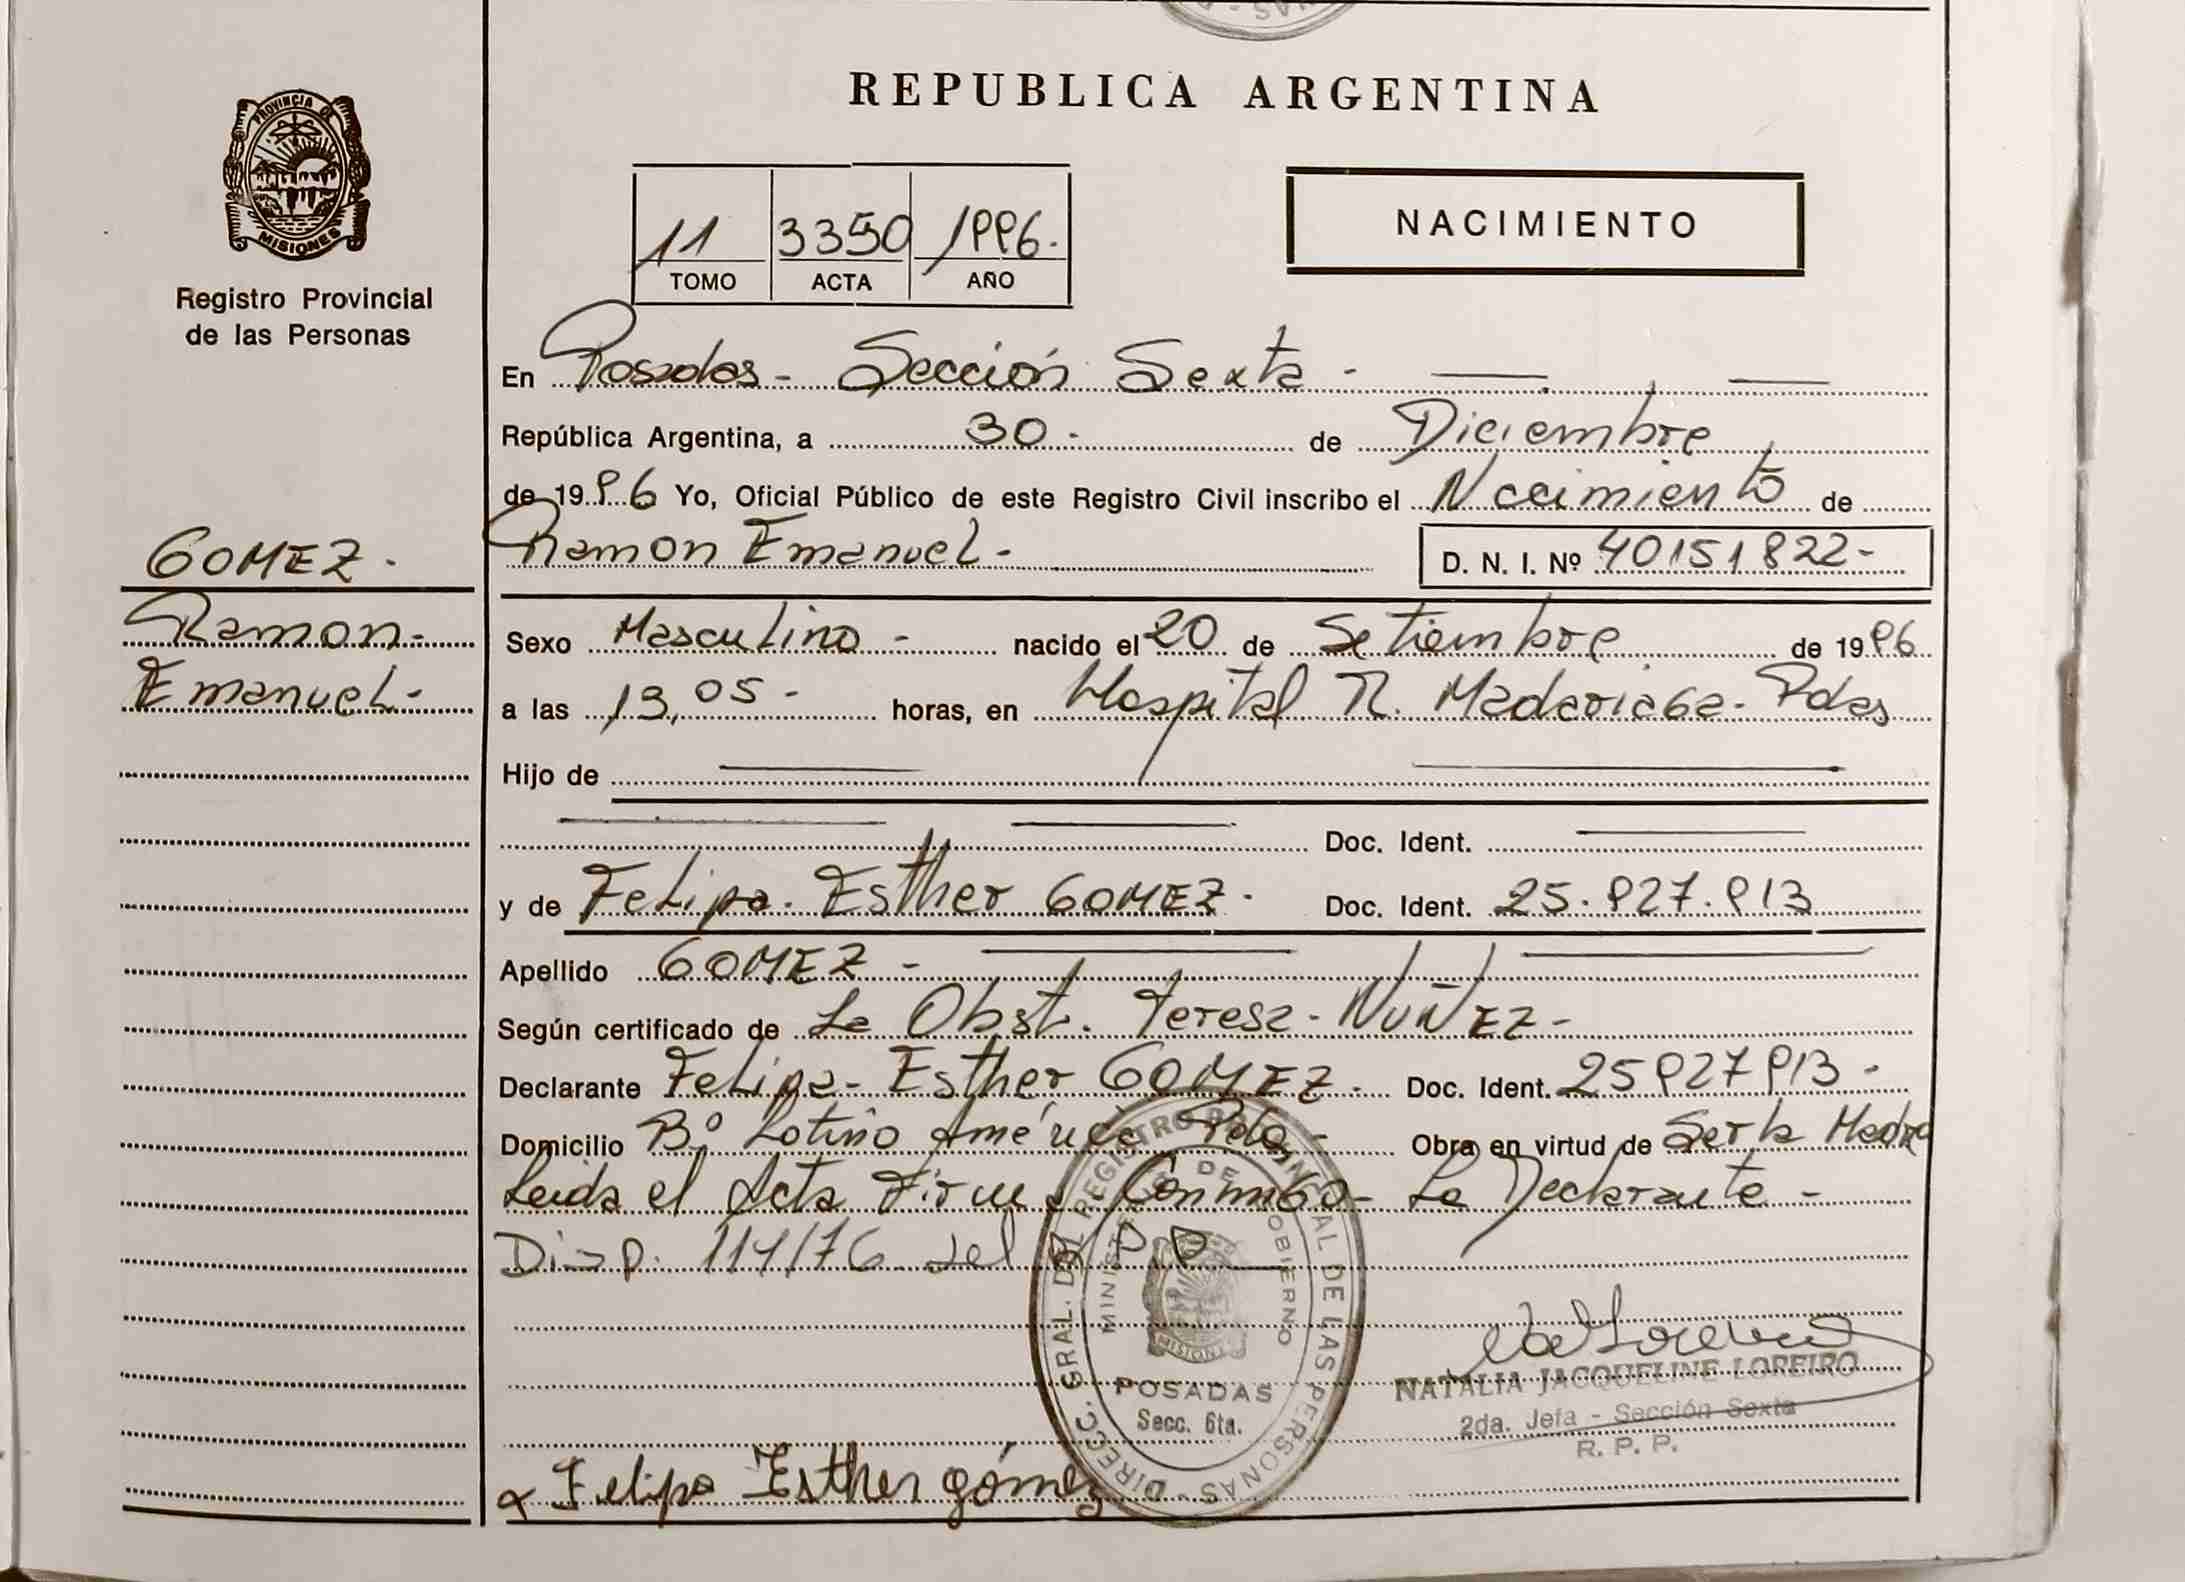 REPUBLICA ARGENTINA
PROVINCIA DE
MISIONES
Registro Provincial
de las Personas
11 3350 1996.
TOMO ACTA AÑO
NACIMIENTO
En Posadas - Sección Sexta -
República Argentina, a 30 - de Diciembre
de 1996 Yo, Oficial Público de este Registro Civil inscribo el Nacimiento de
Ramon Emanuel - D. N. I. Nº 40151822-
GOMEZ -
Ramon-
Emanuel-
Sexo Masculino - nacido el 20 de Setiembre de 1996
a las 13,05 - horas, en Hospital R. Madariaga - Pdas
Hijo de
Doc. Ident.
y de Felipa - Esther GOMEZ - Doc. Ident. 25.927.913
Apellido GOMEZ -
Según certificado de La Obst. Teresa - NUÑEZ -
Declarante Felipa - Esther GOMEZ - Doc. Ident. 25927913 -
Domicilio Bº Latino América Pdas - Obra en virtud de Ser la Madre
Leida el Acta Firma Conmigo - La Declarante -
Disp. 114/76 del R.P.P.
DIRECC. GRAL. DEL REGISTRO PROVINCIAL DE LAS PERSONAS -
MINISTERIO DE GOBIERNO
MISIONES
POSADAS
Secc. 6ta.
NATALIA JACQUELINE LOREIRO
2da. Jefa - Sección Sexta
R. P. P.
Felipa Esther gómez